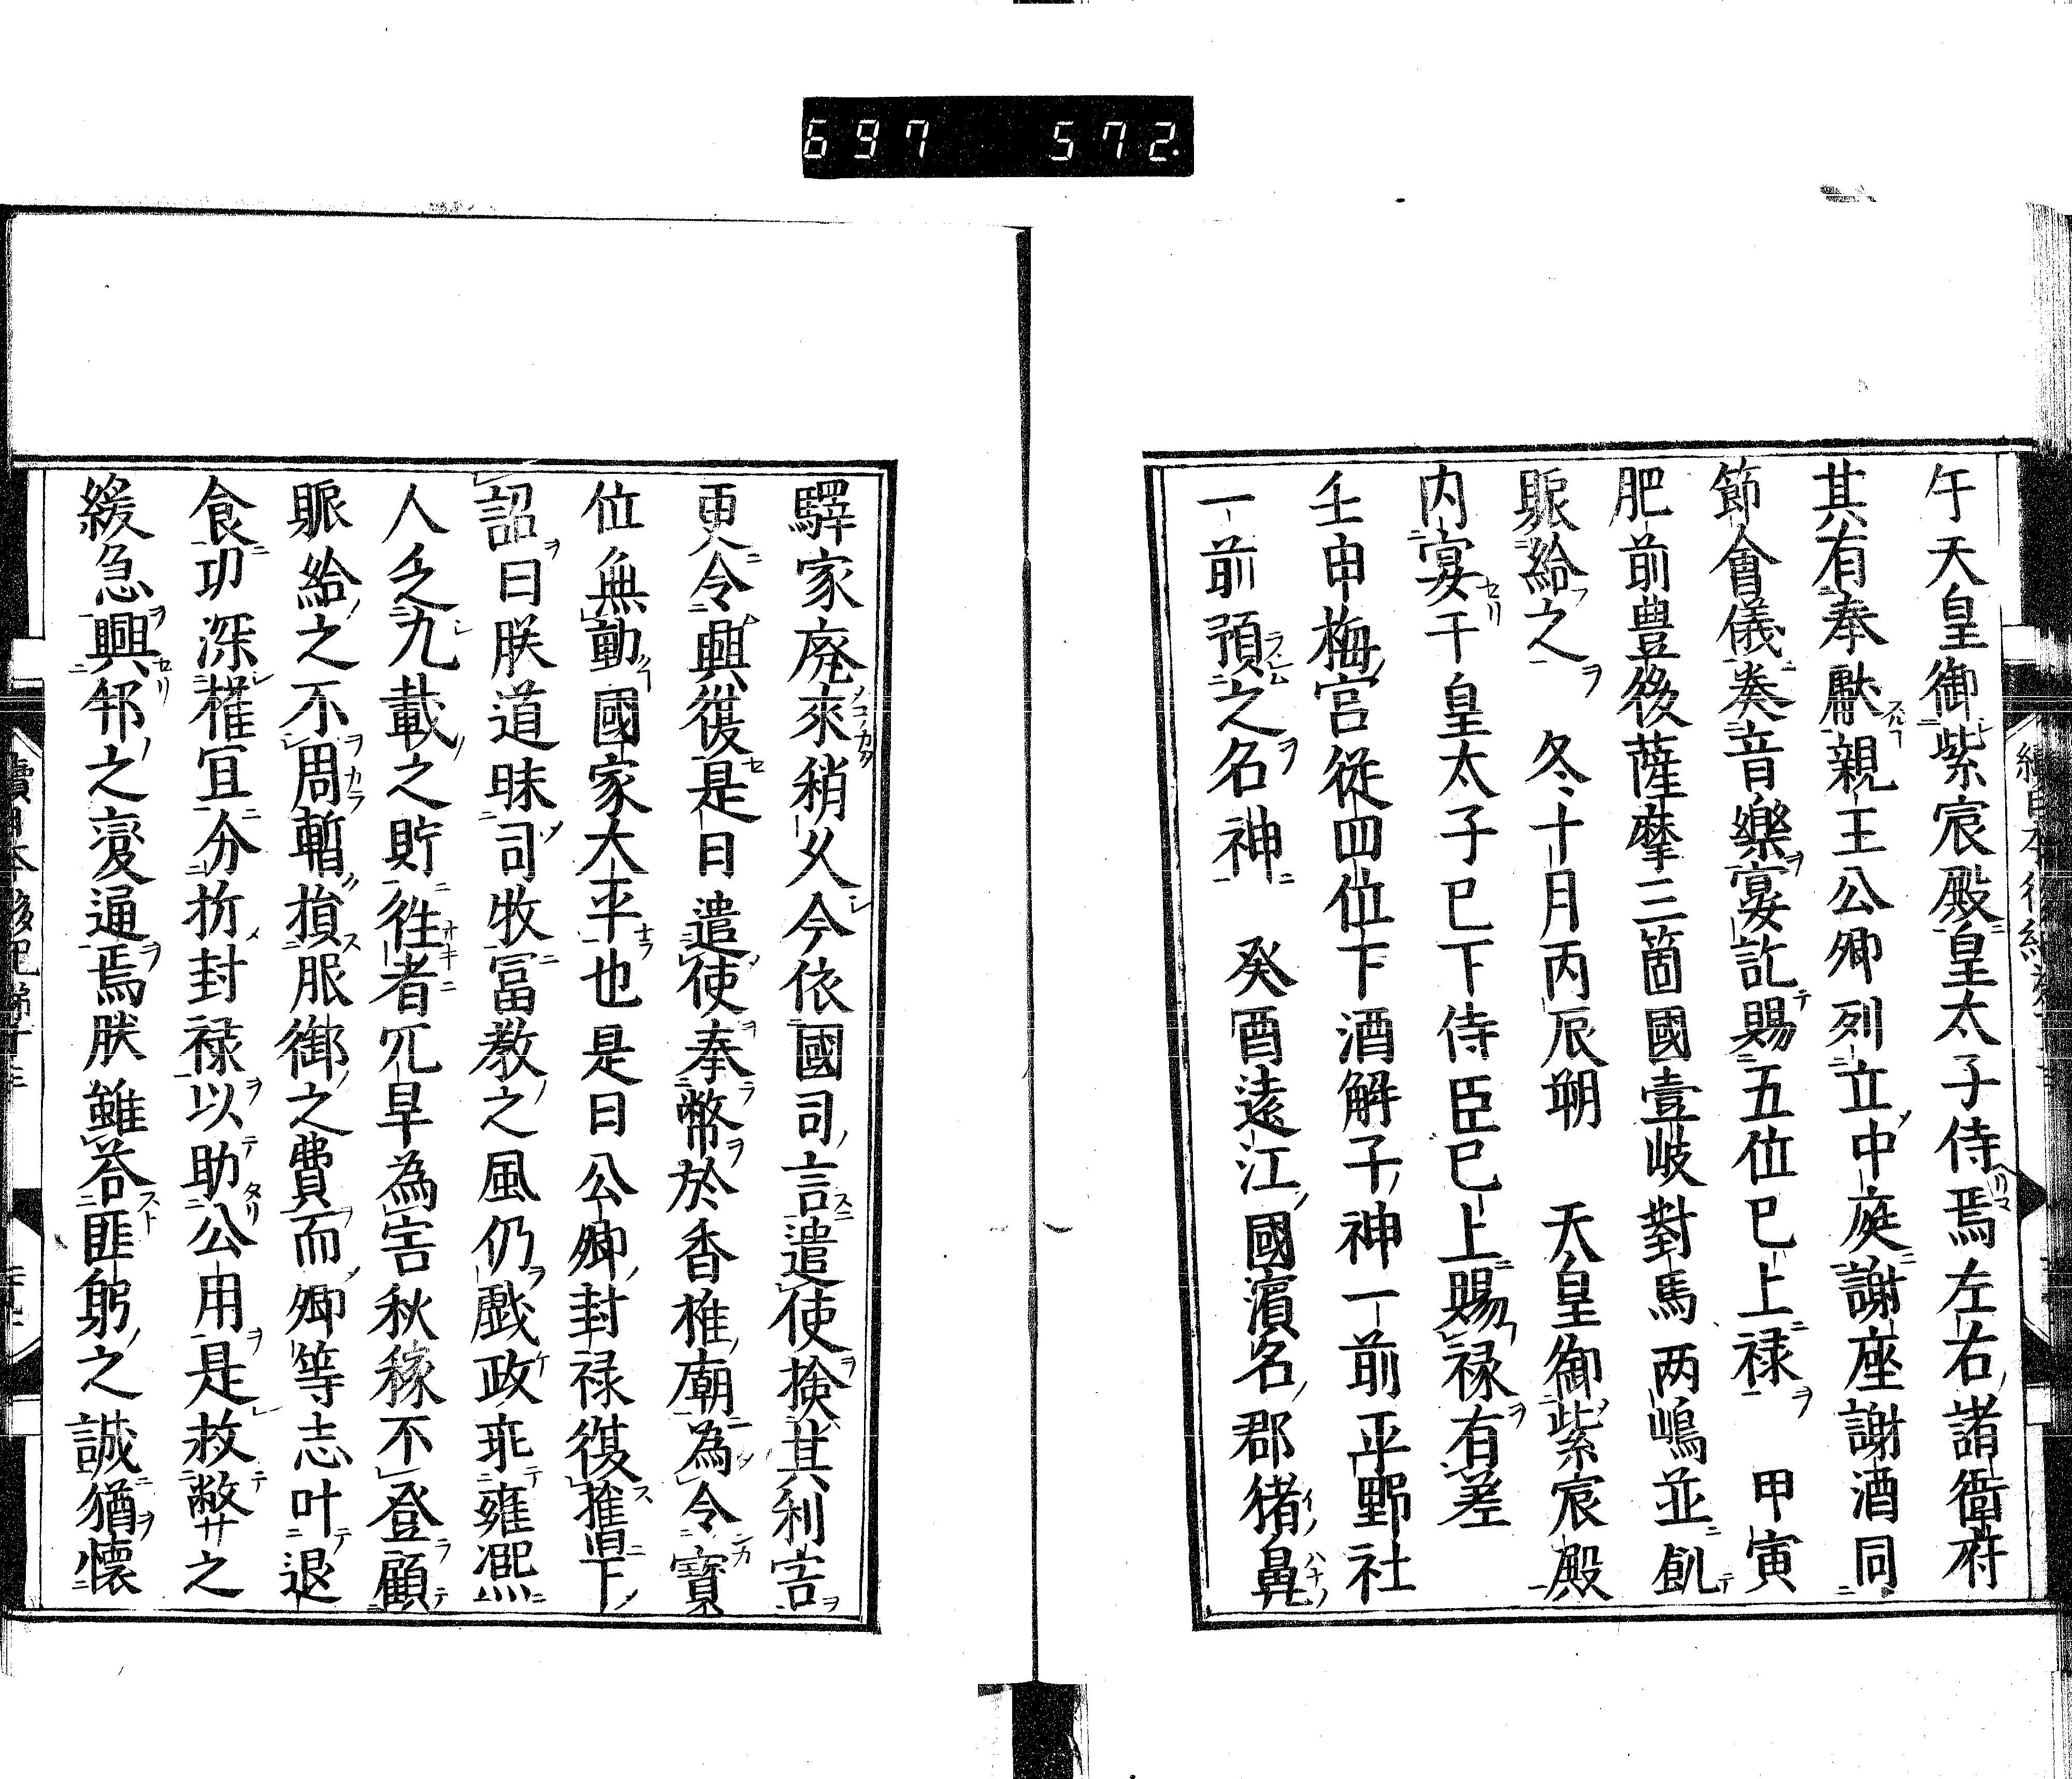 697 572.
午天皇御紫宸殿皇太子侍焉左右諸衞府
其有奉獻親王公卿列立中庭謝座謝酒同
節會儀奏音樂宴訖賜五位已上禄 甲寅
肥前豊後薩摩三箇國壹岐對馬两嶋並飢
賑給之 冬十月丙辰朔 天皇御紫宸殿
内宴于皇太子已下侍臣已上賜禄有差
壬申梅宮從四位下酒解子神一前平野社
一前預之名神 癸酉遠江國濵名郡猪鼻
驛家廃來稍乆今依國司言遣使撿其利害
更令興復是日遣使奉幣於香椎廟為令寳
位無動國家大平也是日公卿封禄復推㫖下
詔曰朕道昧司牧冨教之風仍戯政乖雍凞
人乏九載之貯徃者亢旱為害秋稼不登顧
賑給之不周暫損服御之費而卿等志叶退
食功深權冝分折封禄以助公用是救弊之
緩急興邦之變通焉朕雖荅匪躬之誠猶懐